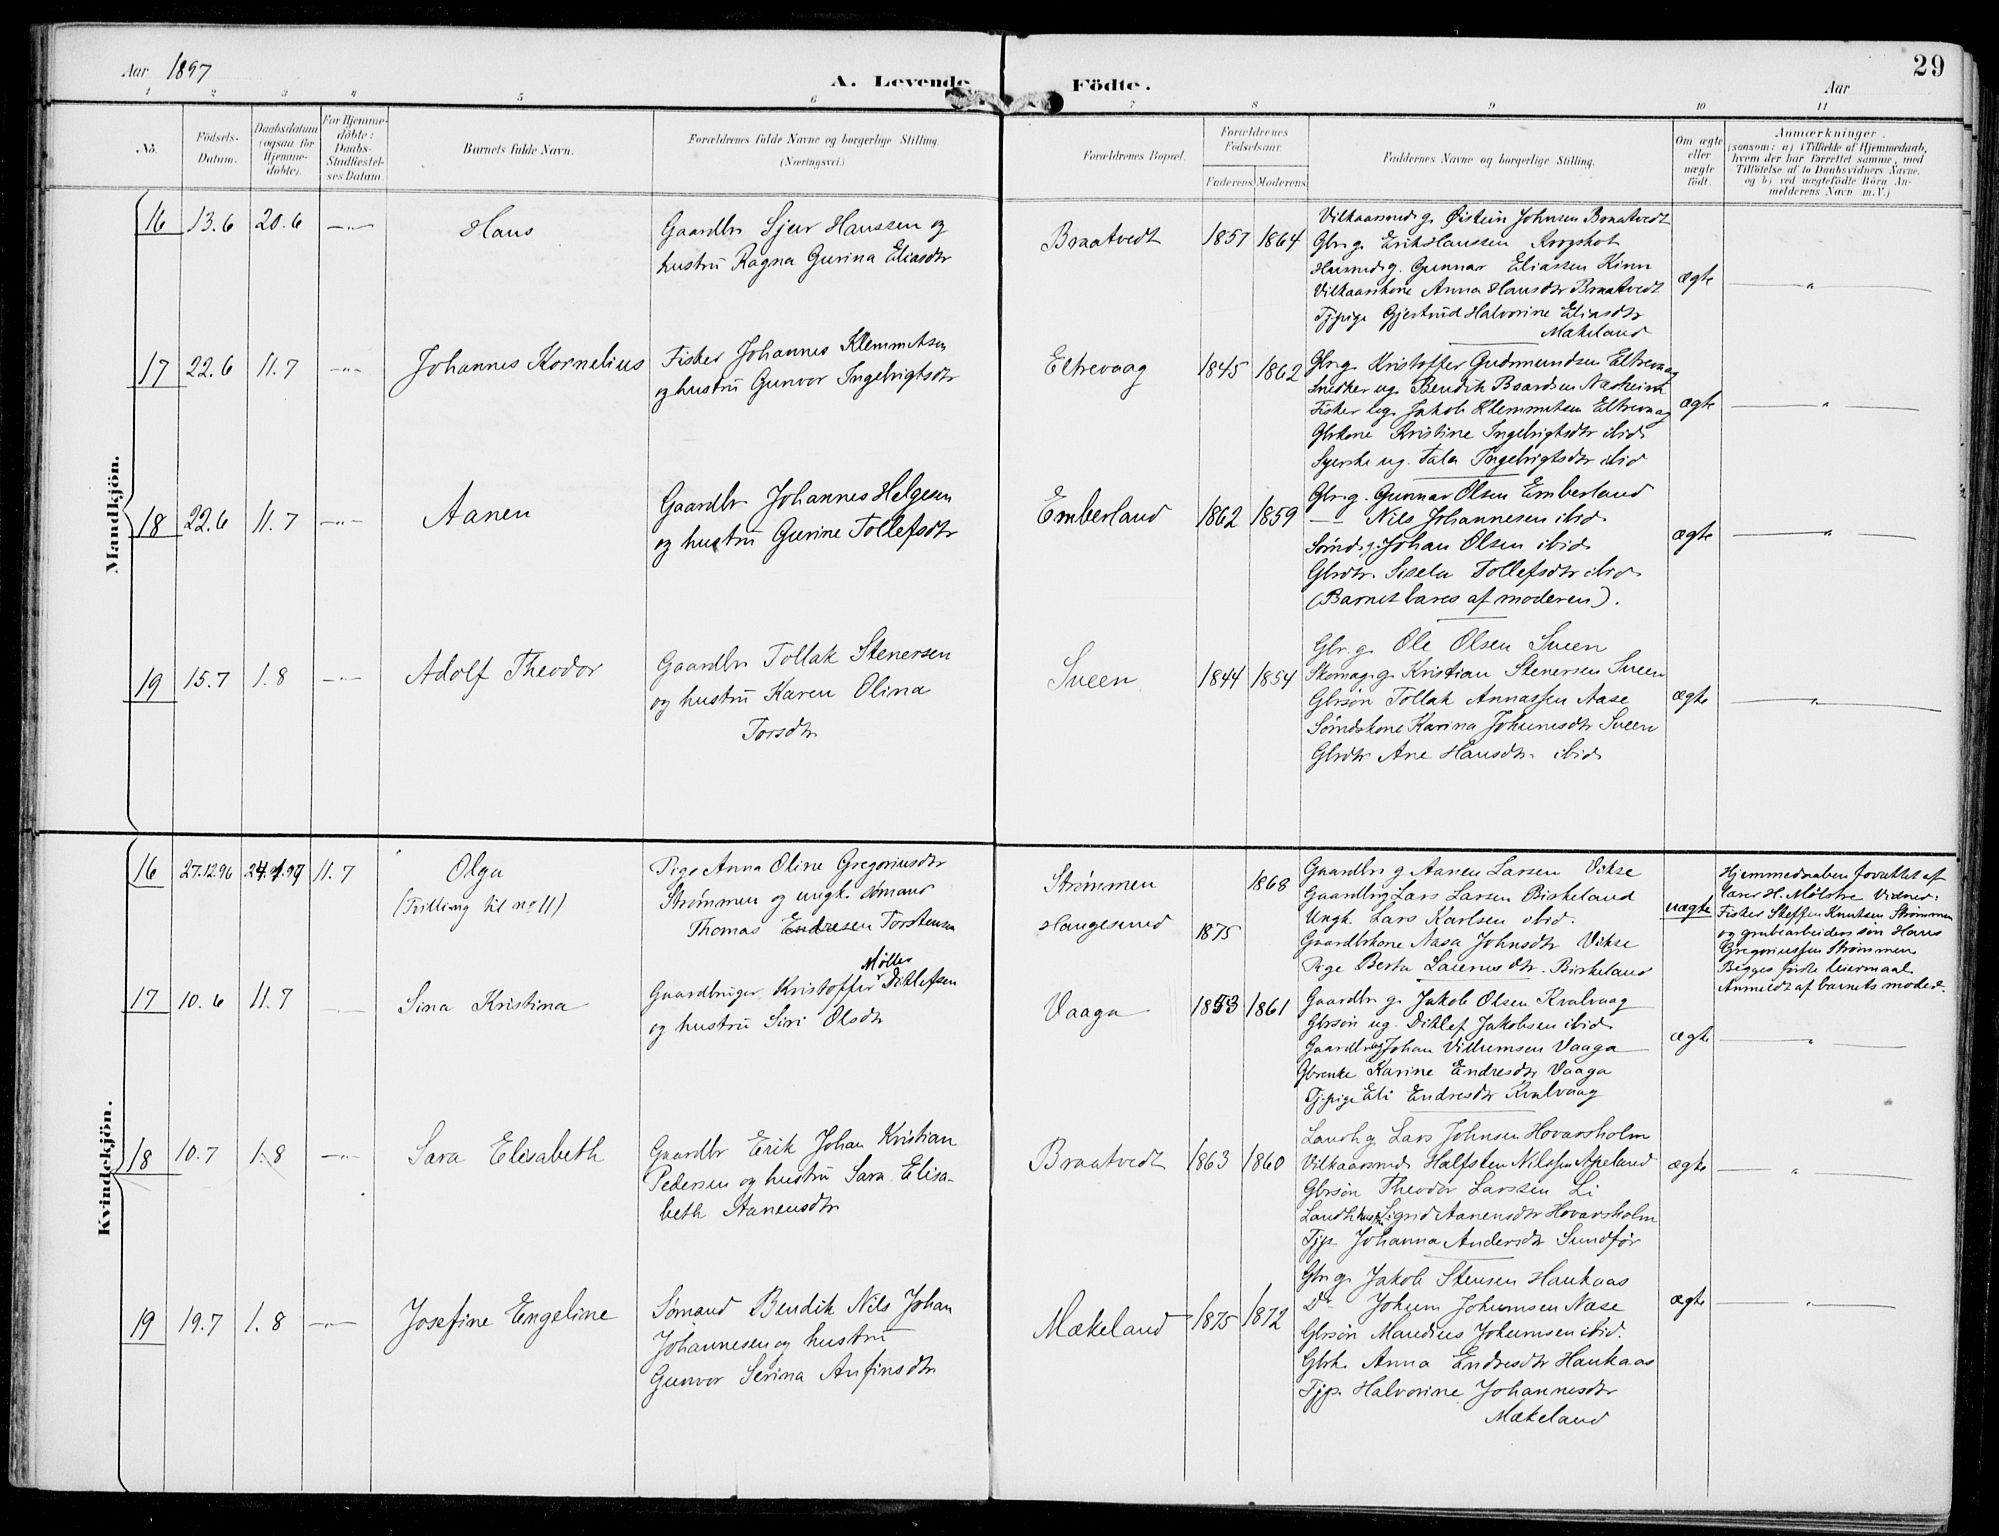 Aar 1897
A. Levende Födte.
Aar
29
1 2 3 4 5 6 7 8 9 10 11
No.
Födsels-Datum.
Daabsdatum (ogsaa for Hjemme-döbte).
For Hjemme-döbte: Daabs-Stadfæstel-ses Datum.
Barnets fulde Navn.
Forældrenes fulde Navne og borgerlige Stilling. (Næringsvei.)
Forældrenes Bopæl.
Forældrenes Födselsaar.
Faderens. Moderens.
Faddernes Navne og borgerlige Stilling.
Om ægte eller uægte födt.
Anmærkninger.
(saasom: a) i Tilfælde af Hjemmedaab, hvem der har forrettet samme, med Tilföielse af to Daabsvidners Navne. og b) ved uægtefödte Börn Anmelderens Navn m.V.)
Mandkjön.
16 13.6 20.6 —"— Hans
Gaardbr Sjur Hanssen og
hustru Ragna Gurina Eliasdtr
Braatvedt 1857 1864
Vilkaarsmd g. Øistein Johnsen Braatvedt
Gbr. g. Erik Hanssen
Husmd g. Gunnar Eliassen Kinn
Vilkaarskone Anna Hansdtr Braatvedt
Tj.pige Gjertrud Halvorine Eliasdtr
Mækeland
ægte —"—
17 22.6 11.7 —"— Johannes Kornelius
Fisker Johannes Klemmetsen
og hustru Gunvor Ingebrigtsdtr
Eltrevaag 1845 1862
Gbr. g. Kristoffer Gudmundsen Eltrevaag
Snedker ug. Bendik Baardsen Nasheim
Fisker ug. Jakob Klemmetsen Eltrevaag
Gbrkone Kristine Ingebrigtsdtr ibid
Syerske ug. Tala Ingebrigtsdtr ibid
ægte —"—
18 22.6 11.7 —"— Aanen
Gaardbr Johannes Helgesen
og hustru Gurine Tollefsdtr
Emberland 1862 1859
Gbr. g. Gunnar Olsen Emberland
—"— Nils Johannesen ibid.
Sømd. g. Johan Olsen ibid.
Gbrdtr. Sisela Tollefsdtr ibid.
(Barnet bares af moderen).
ægte —"—
19 15.7 1.8 —"— Adolf Theodor
Gaardbr Tollak Stenersen
og hustru Karen Olina
Torsdtr
Sveen 1844 1854
Gbr. g. Ole Olsen Sveen
Skomag. g. Kristian Stenersen Sveen
Gbrsøn Tollak Annassen Aase
Sømdskone Karina Johannesdtr Sveen
Gbrdtr Ane Hansdtr. ibid.
ægte —"—
Kvindekjön.
16 27.12.96 24.1.97 11.7 Olga
(Tvilling til no 11)
Pige Anna Oline Gregoriusdtr
Strømmen og ungk. sømand
Thomas Endresen Torstensen
Strømmen 1868
Haugesund 1875
Gaardbr g Aanen Larsen Vikse
Gaardbr g Lars Larsen Birkeland
Ungk. Lars Karlsen ibid.
Gaardbrkone Aasa Johnsdtr Vikse
Pige Berta Larensdtr. Birkeland
uægte
Hjemmedaaben forrettet af
lærer H. Mölstre Vidner:
Fisker Steffen Knutsen Strømmen
og grubearbeiders søn Hans
Gregoriussen Strømmen
Begges første leiermaal.
Anmeldt af barnets moder.
17 10.6 11.7 Sina Kristina
Gaardbruger Kristoffer Møller Ditlefsen
og hustru Siri Olsdtr
Vaaga 1853 1861
Gaardbr g. Jakob Olsen Kvalvaag
Gbrsøn ug. Ditlef Jakobsen ibid.
Gaardbr ug Johan Vilhemsen Vaaga
Gbrenke Karine Endresdtr Vaaga
Tj.pige Eli Endresdtr Kvalvaag
ægte —"—
18 10.7 1.8 —"— Sara Elisabeth
Gaardbr Erik Johan Kristian
Pedersen og hustru Sara Elisa-
beth Aanensdtr
Braatvedt 1863 1860
Landh. g. Lars Johnsen Hovarsholm
Vilkaarsmd. Halfsten Nilssen Apeland
Gbrsøn Theodor Larssen Li
Landh. hustr. Sigrid Aanensdtr Hovarsholm
Tjp. Johanna Andersdtr Sundfør
ægte —"—
19 19.7 1.8 —"— Josefine Engeline
Sømand Bendik Nils Johan
Johannesen og hustru
Gunvor Serina Anfinsdtr
Mækeland 1875 1872
Gbr g. Jakob Stensen Haukaas
Do Johum Johumsen Nase
Gbrsøn Mandius Johumsen ibid.
Gbrk. Anna Endresdtr Haukaas
Tjp. Halvorine Johannesdtr
Mækeland
ægte —"—